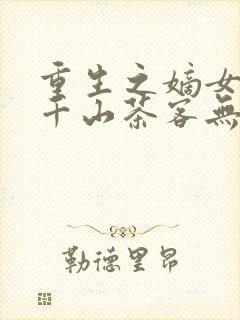 重生之嫡女
千山茶客無
勒德里昂